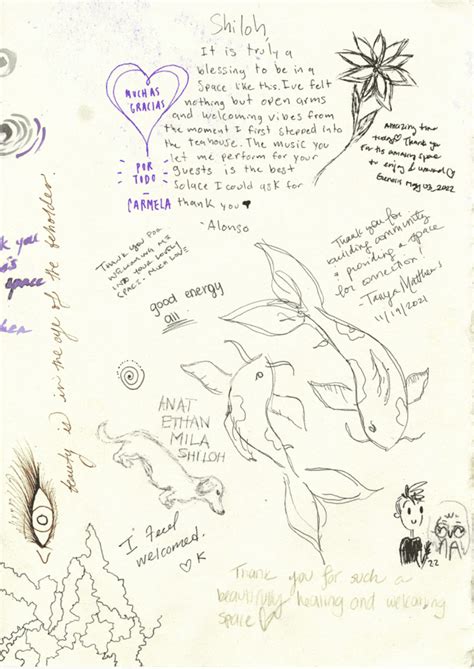 Shiloh,
It is truly a
blessing to be in a
space like this. I've felt
nothing but open arms
and welcoming vibes from
the moment I first stepped into
the teahouse. The music you
let me perform for your
guests is the best
solace I could ask for
thank you
-Alonso
MUCHAS
GRACIAS
POR
TODO
- CARMELA
Amazing time
today Thank you
for the amazing space
to enjoy & unwind
May 03, 2022
Thank you for
welcoming me
into your lovely
space.
Thank you for
building community
& providing a space
for connection!
- Tanya
11/19/2021
good energy
all
k you
space
beauty is in the eye of the beholder
ANAT
ETHAN
MILA
SHILOH
I feel
welcomed.
K
22
Thank you for such a
beautifully healing and welcoming
space